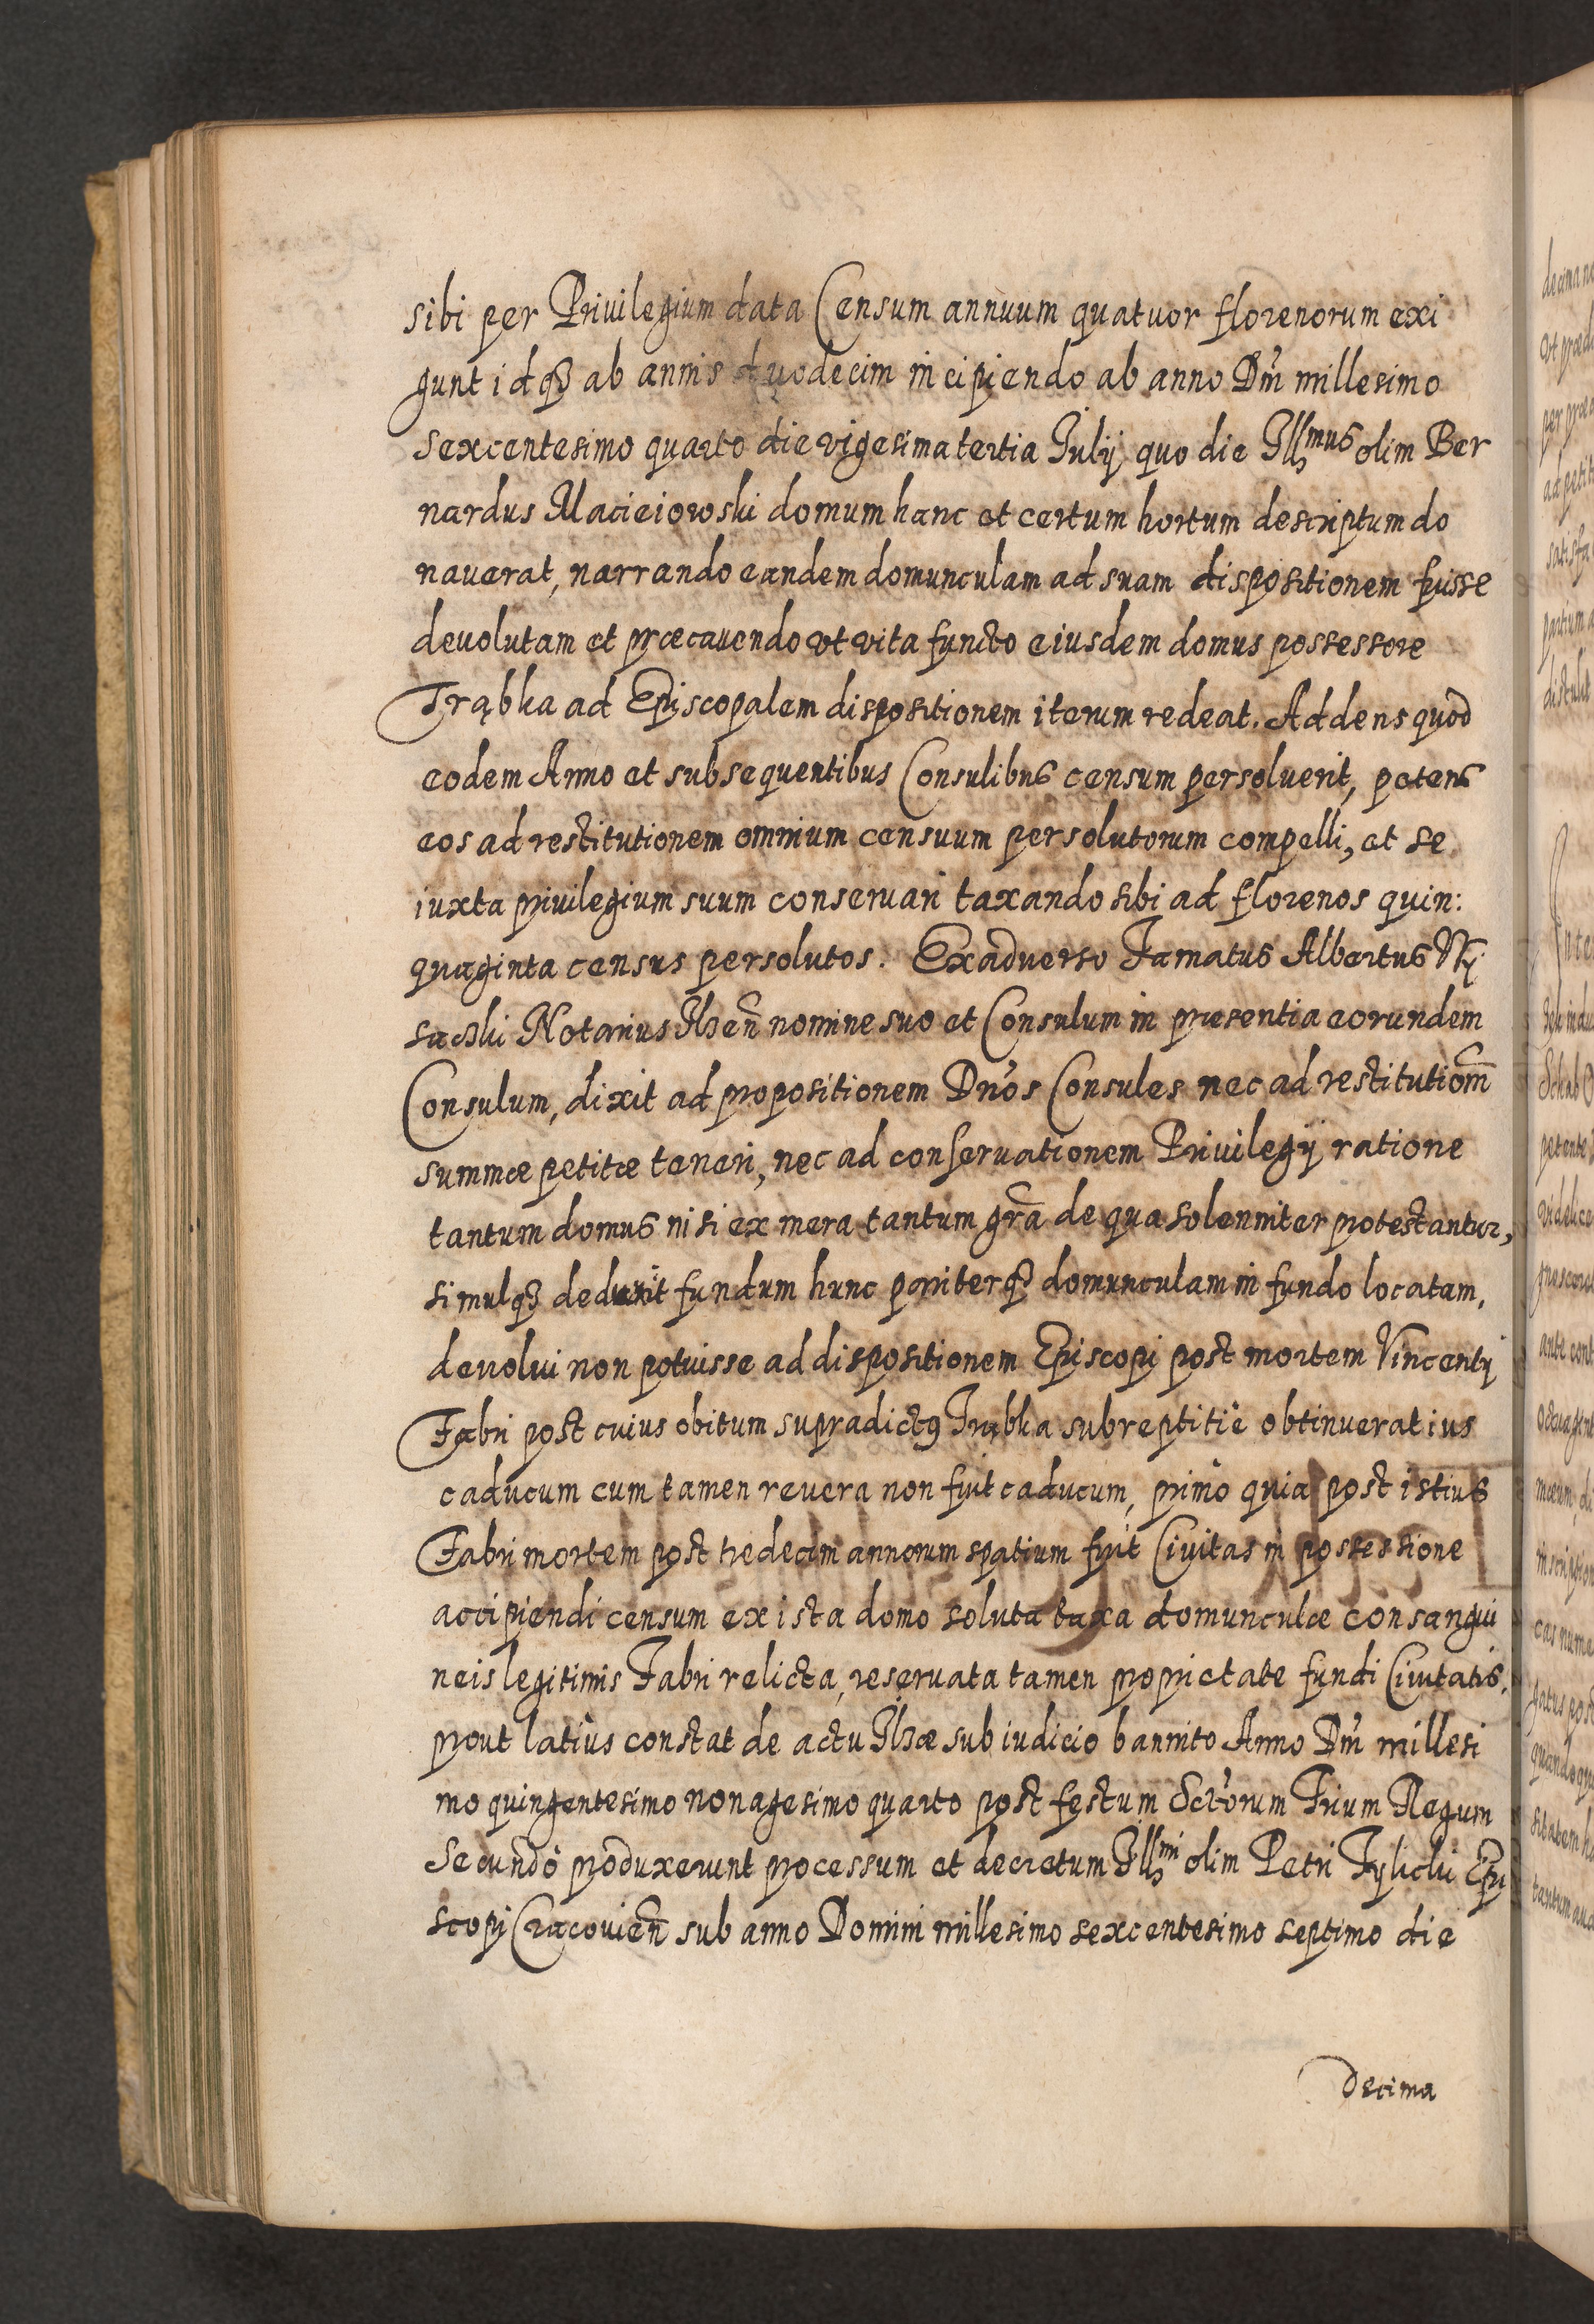 sibi per Privilegium data Censum annuum quatuor florenorum exi
gunt idqꝫ ab annis duodecim incipiendo ab anno Dm̃ millesimo
sexcentesimo quarto die vigesima tertia Julij quo die Illmus olim Ber
nardus Macieiowski domum hanc et certum hortum descriptum do
nauerat, narrando eandem domunculam ad suam dispositionem fuisse
deuolutam et præcauendo vt vita functo eiusdem domus possessore
Trąbka ad Episcopalem dispositionem iterum redeat. Addens quod
eodem Anno et subsequentibus Consulibus censum persoluerit, petens
eos ad restitutionem omnium censuum persolutorum compelli, et se
iuxta priuilegium suum conseruari taxando sibi ad florenos quin:
quaginta census persolutos. Ex aduerso Famatus Albertus
Notarius Ilzeñ nomine suo et Consulum in præsentia eorundem
Consulum, dixit ad propositionem Dños Consules nec ad restitutiom̃
summæ petitæ teneri, nec ad conseruationem Privilegij ratione
tantum domus nisi ex mera tantum gra̅ de qua solenniter protestantur,
simulqꝫ deduxit fundum hunc pariterqꝫ domunculam in fundo locatam,
deuolui non potuisse ad dispositionem Episcopi post mortem Vincentij
Fabri post cuius obitum supradictꝯ Trąbka subreptitiè obtinuerat ius
caducum cum tamen revera non fuit caducum, primò quia post istius
Fabri mortem post tredecim annorum spatium fuit Ciuitas in possessione
accipiendi censum ex ista domo soluta taxa domunculæ consangui
neis legitimis Fabri relicta, reseruata tamen proprietate fundi Ciuitatis,
prout latiùs constat de actu Ilzæ sub iudicio bannito Anno Dm̃ millesi
mo quingentesimo nonagesimo quarto post festum Sctorum Trium Regum
Secundò produxerunt processum et decretum Illmi olim Petri Tylicki Epi
scopi Cracouieñ sub anno Domini millesimo sexcentesimo septimo die
Decima